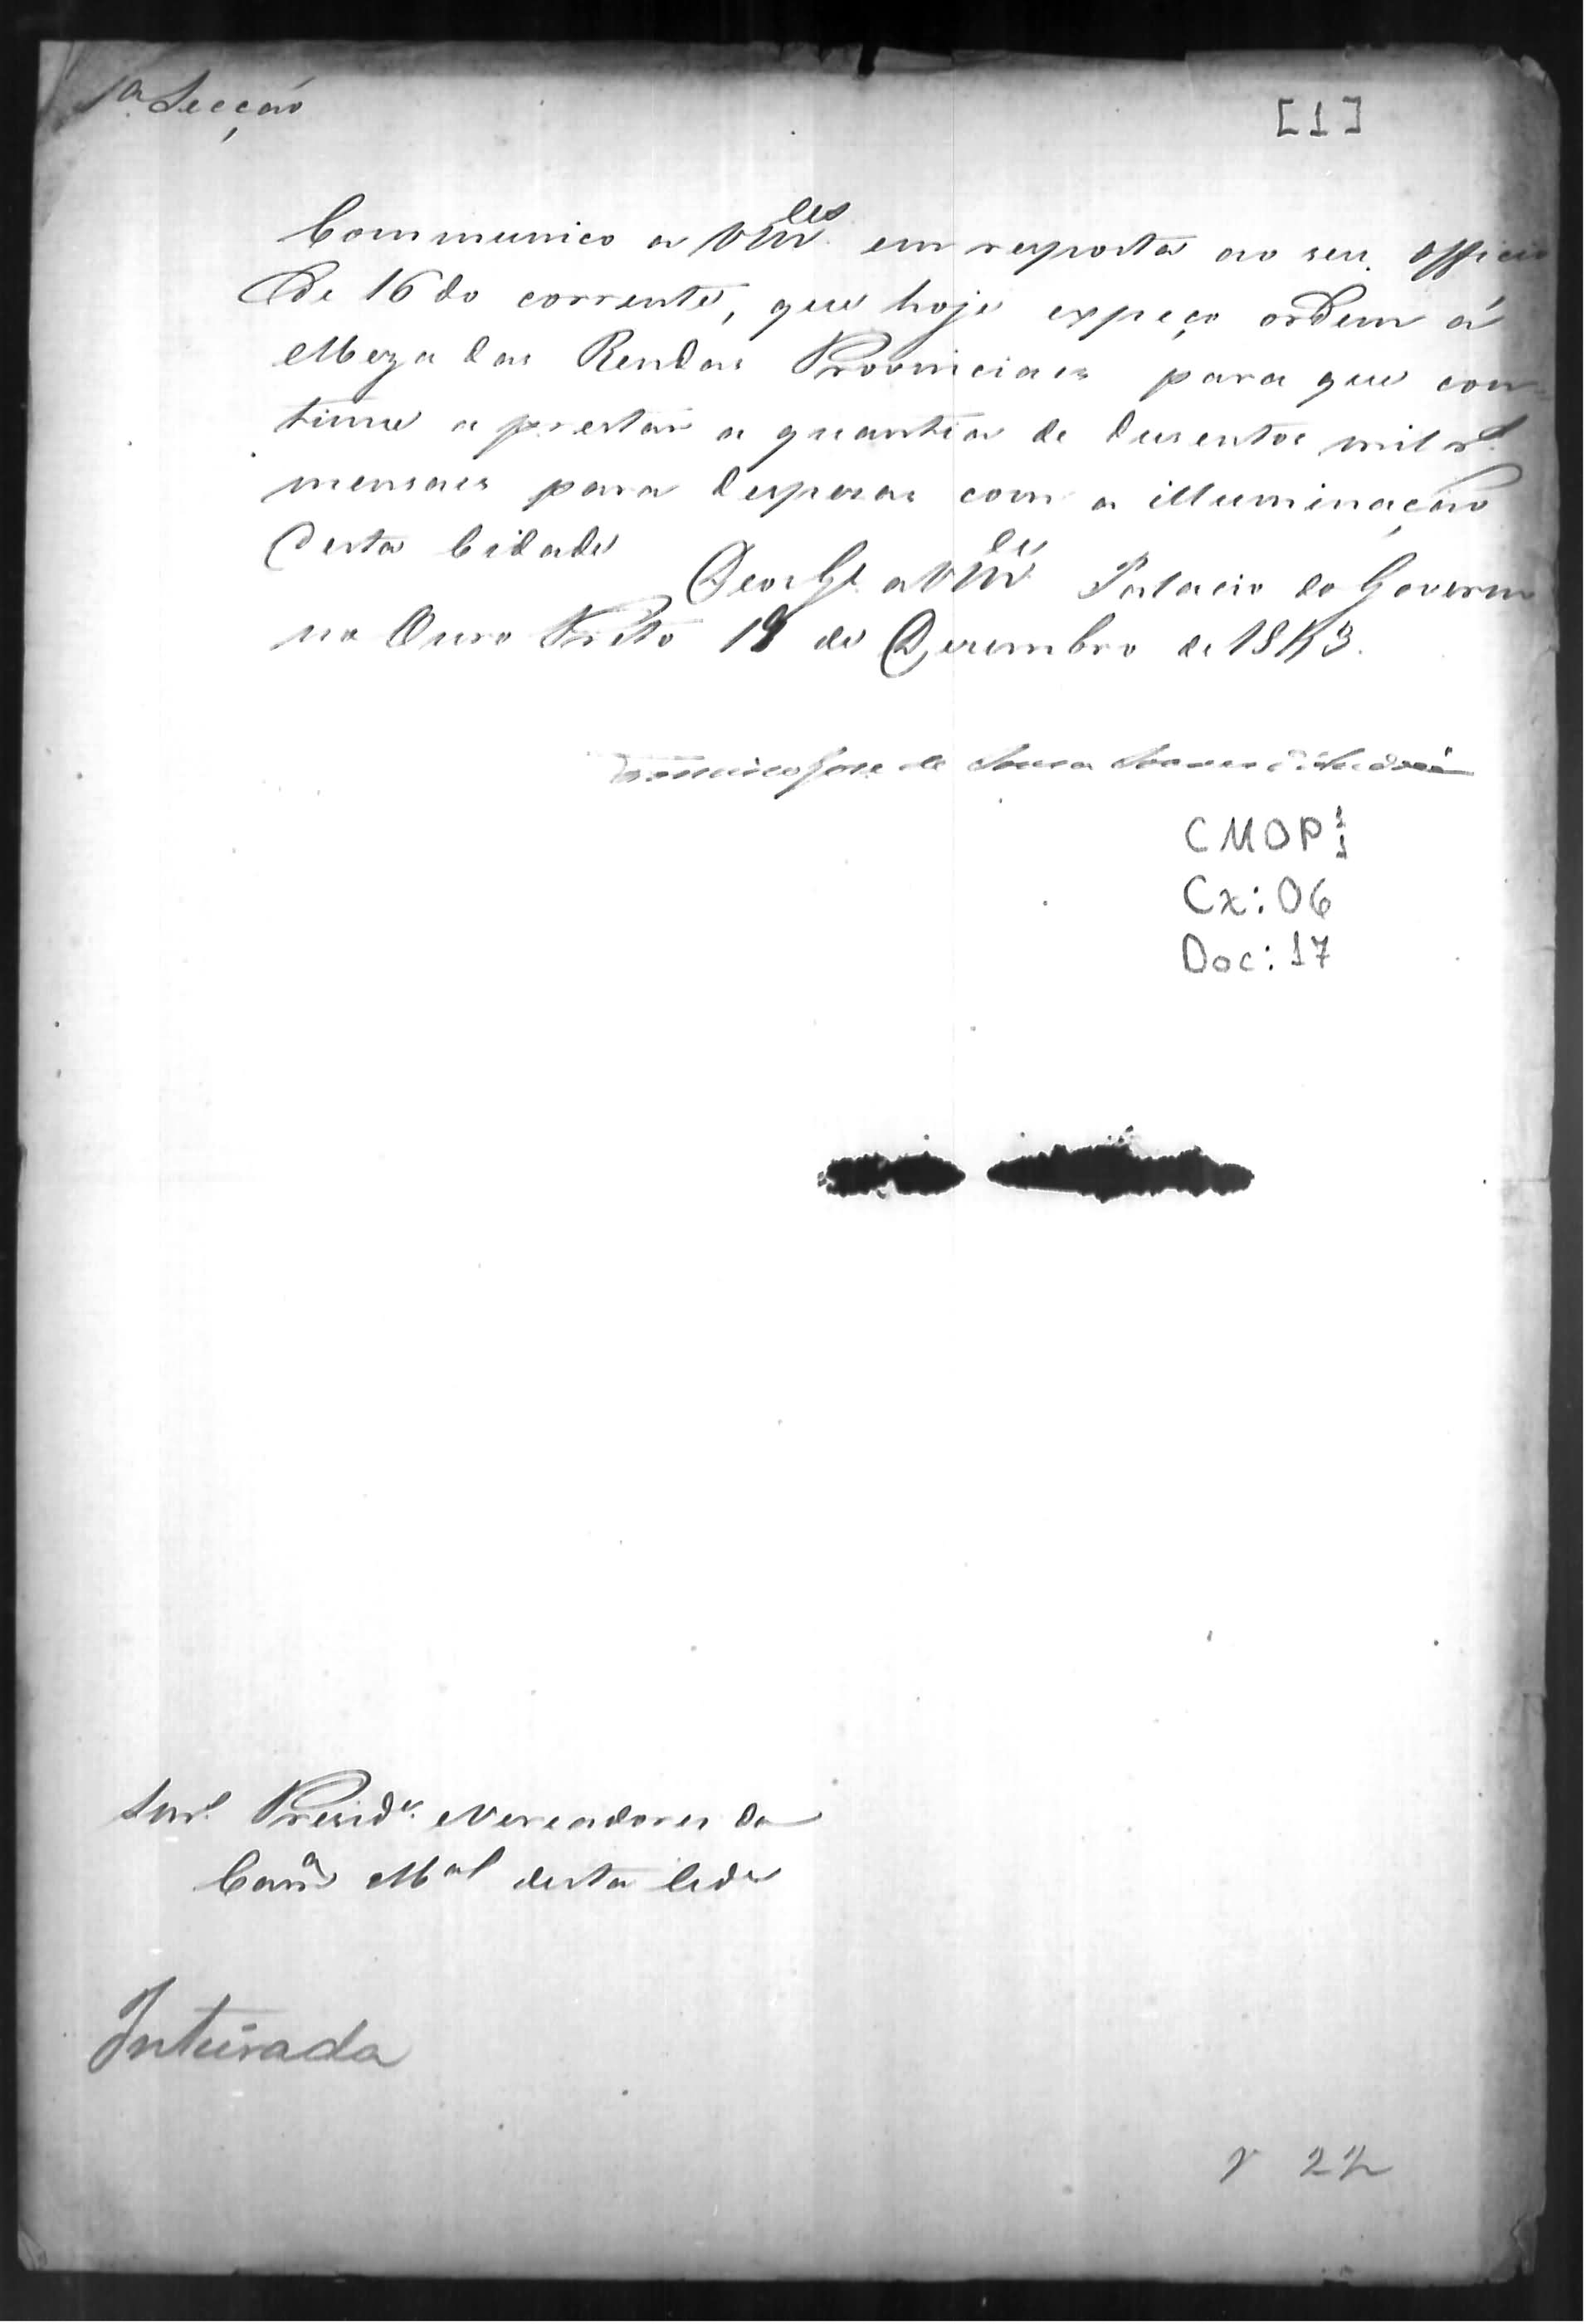 1ª Secção
[1]
Communico a VM.ces em resposta ao seu officio
de 16 do corrente, que hoje expeço ordem á
Meza das Rendas Provinciaes para que con-
tinue a prestar a quantia de dusentos mil rs.
mensaes para despesas com a illuminação
desta Cidade
Deos Gde a VM.ces Palacio do Governo
no Ouro Preto 19 de Dezembro de 1843.
Francisco José de Sousa Soares d'Andréa
CMOP
Cx: 06
Doc: 17
Snrs. Preside. e Vereadores da
Camª Mal desta Cide
Inteirada
22